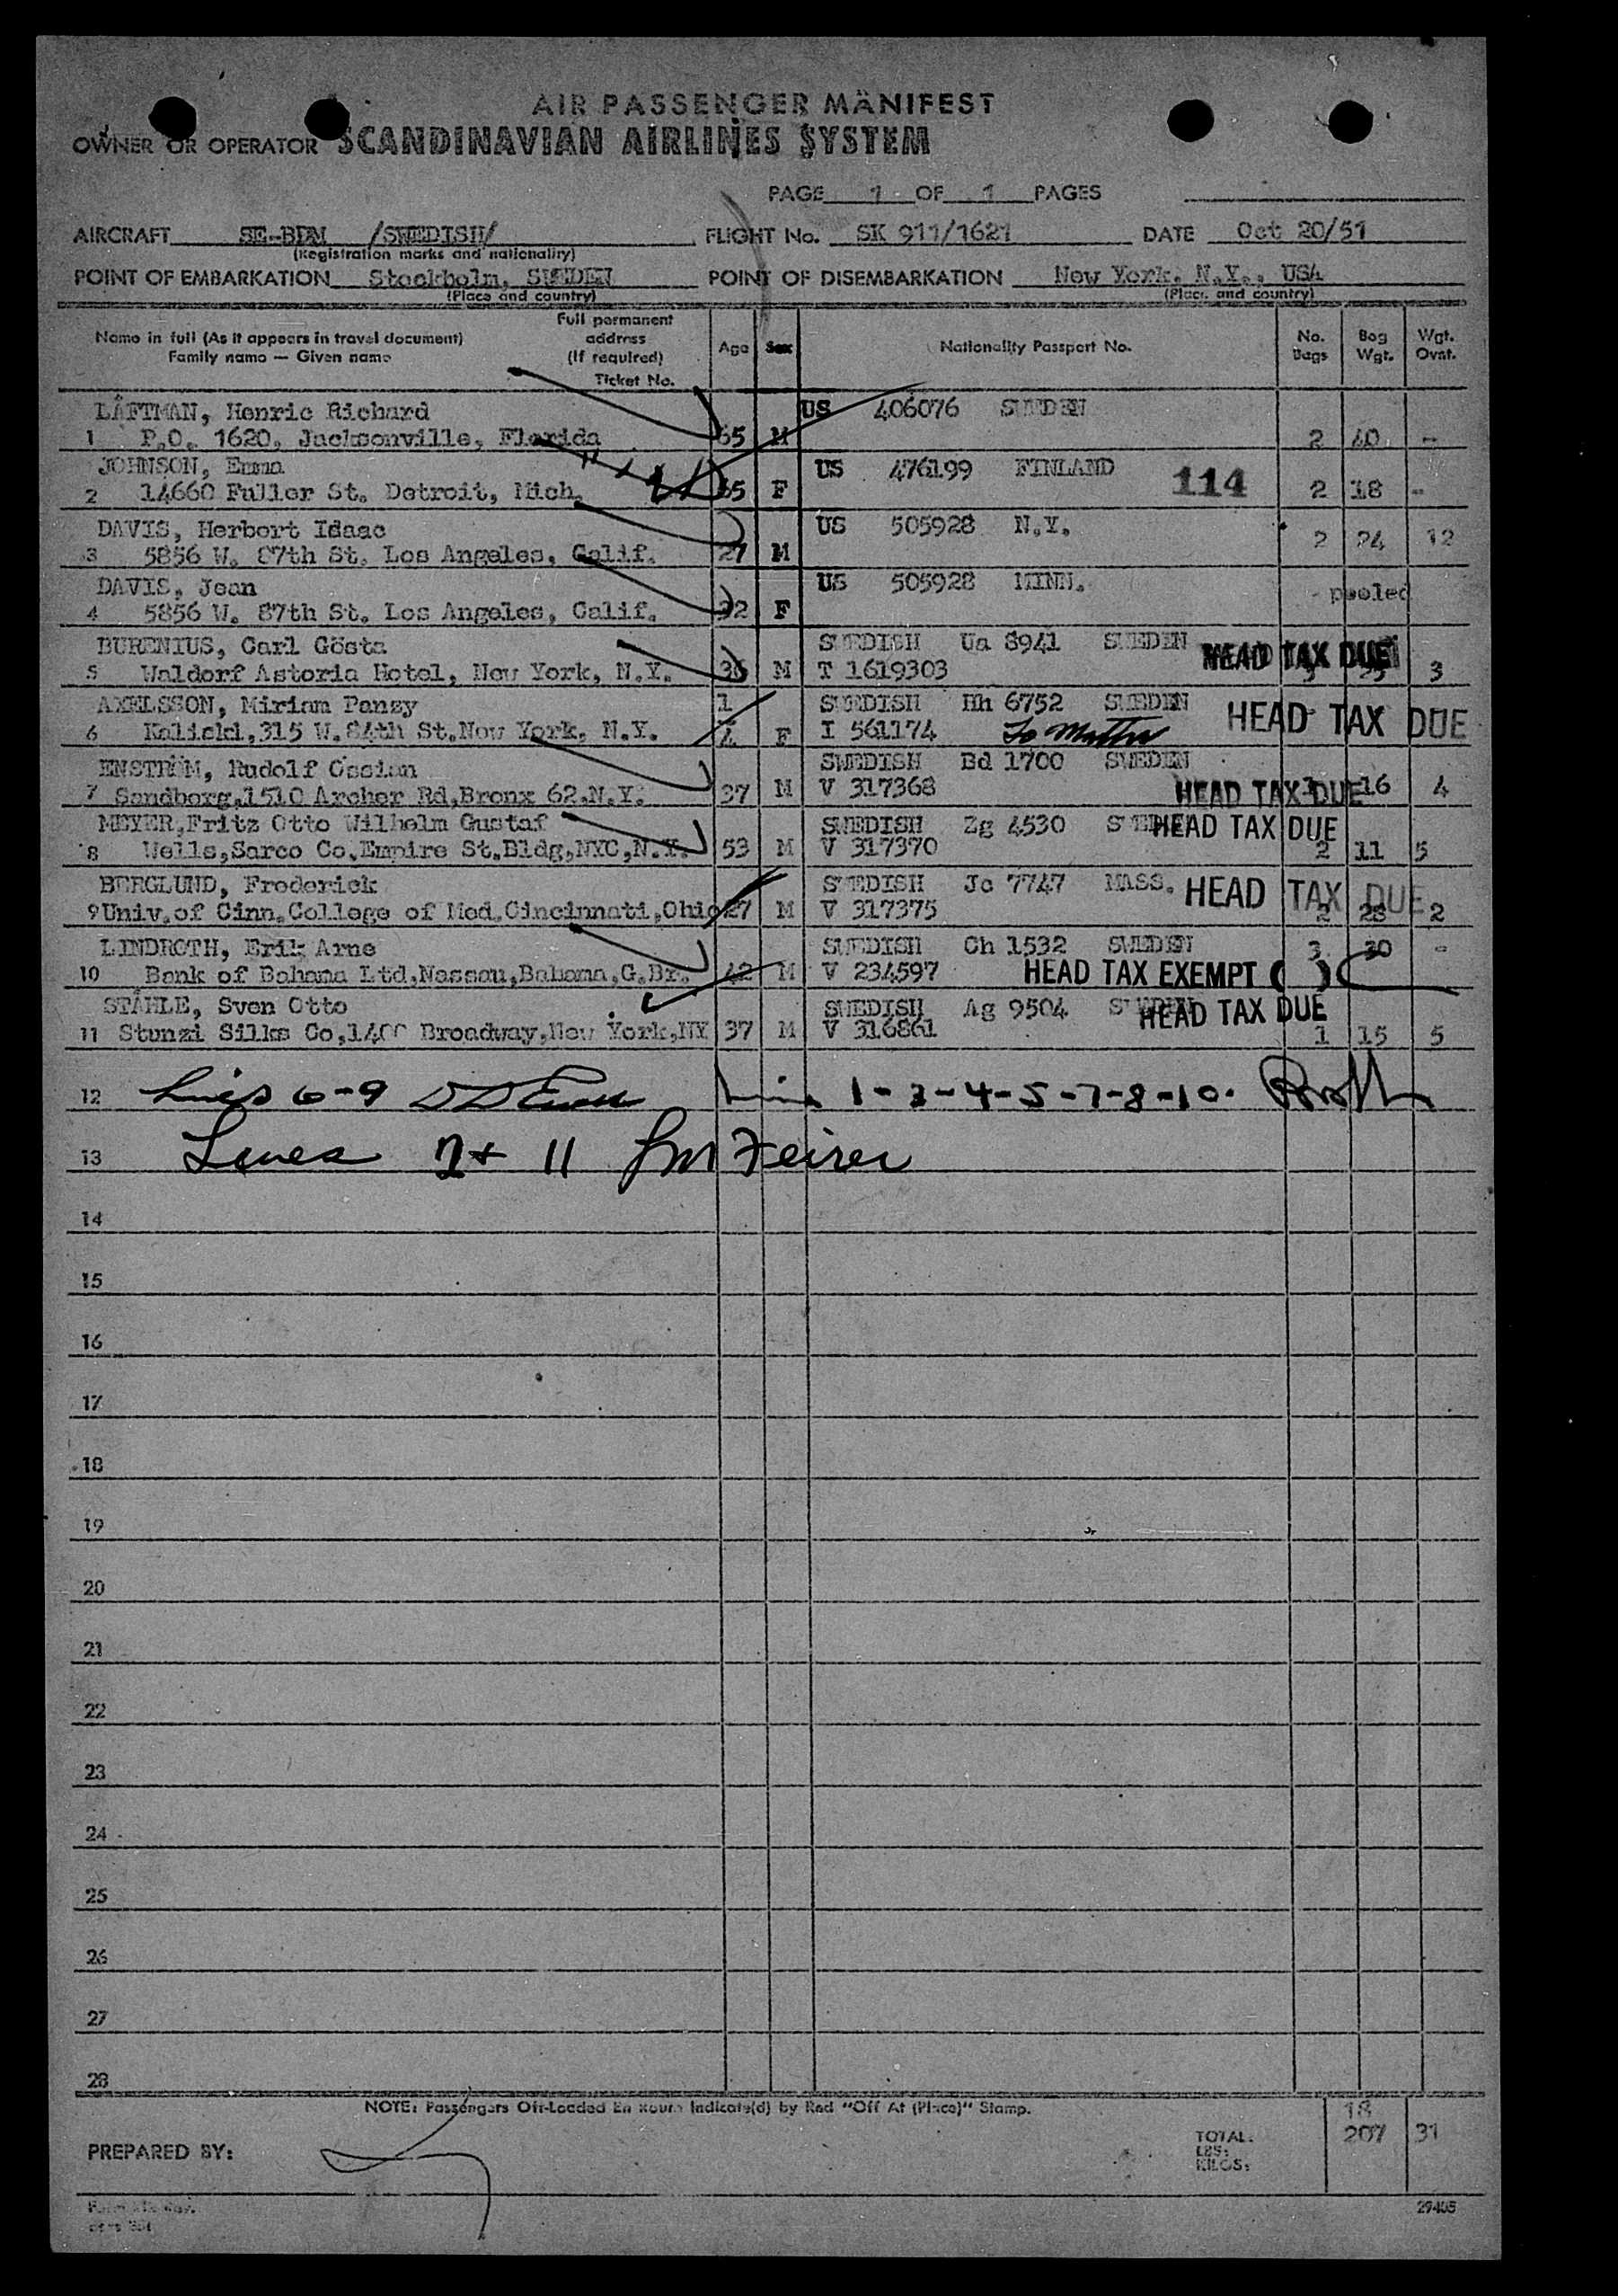 AIR PASSENGER MANIFEST
OWNER OR OPERATOR SCANDINAVIAN AIRLINES SYSTEM
PAGE 1 OF 1 PAGES
AIRCRAFT SE-BDM /SWEDISH/ FLIGHT No. SK 911/1621 DATE Oct 20/51
(Registration marks and nationality)
POINT OF EMBARKATION Stockholm, SWEDEN POINT OF DISEMBARKATION New York, N.Y., USA
(Place and country) (Place and country)
Name in full (As it appears in travel document) Family name — Given name Full permanent address (If required) Ticket No. Age Sex Nationality Passport No. No. Bags Bag Wgt. Wgt. Ovwt.
LÅFTMAN, Henric Richard US 406076 SWEDEN
1 P.O. 1620, Jacksonville, Florida 65 M 2 40 -
JOHNSON, Emma US 476199 FINLAND 114
2 14660 Fuller St. Detroit, Mich. 65 F 2 18 -
DAVIS, Herbert Isaac US 505928 N.Y.
3 5856 W. 87th St. Los Angeles, Calif. 27 M 2 24 12
DAVIS, Jean US 505928 MINN. - pooled
4 5856 W. 87th St. Los Angeles, Calif. 32 F
BURENIUS, Carl Gösta SWEDISH Ua 8941 SWEDEN HEAD TAX DUE
5 Waldorf Astoria Hotel, New York, N.Y. M T 1619303 3
AXELSSON, Miriam Pansy 1 SWEDISH Hh 6752 SWEDEN HEAD TAX DUE
6 Kaliski,315 W.84th St.New York, N.Y. F I 561174 To Mother
ENSTRÖM, Rudolf Ossian SWEDISH Bd 1700 SWEDEN
7 Sandborg,1510 Archer Rd,Bronx 62.N.Y. 37 M V 317368 HEAD TAX DUE 16 4
MEYER,Fritz Otto Wilhelm Gustaf SWEDISH Zg 4530 HEAD TAX DUE
8 Wells,Sarco Co.Empire St.Bldg,NYC,N.Y. 53 M V 317370 2 11 5
BERGLUND, Frederick SWEDISH Jc 7747 MASS. HEAD TAX DUE
9 Univ.of Cinn.College of Med.Cincinnati,Ohio 27 M V 317375 2 28 2
LINDROTH, Erik Arne SWEDISH Ch 1532 SWEDEN 3 30 -
10 Bank of Bahama Ltd,Nassau,Bahama,G.Br. 42 M V 234597 HEAD TAX EXEMPT ( )
STÅHLE, Sven Otto SWEDISH Ag 9504 SWEDEN HEAD TAX DUE
11 Stunzi Silks Co,1400 Broadway,New York,NY 37 M V 316861 1 15 5
12 6-9 1-3-4-5-7-8-10.
13 Lines 2+ 11
14
15
16
17
18
19
20
21
22
23
24
25
26
27
28
NOTE: Passengers Off-Loaded En Route Indicate(d) by Red "Off At (Place)" Stamp.
18
PREPARED BY: TOTAL: 207 31
LBS:
KILOS:
29405